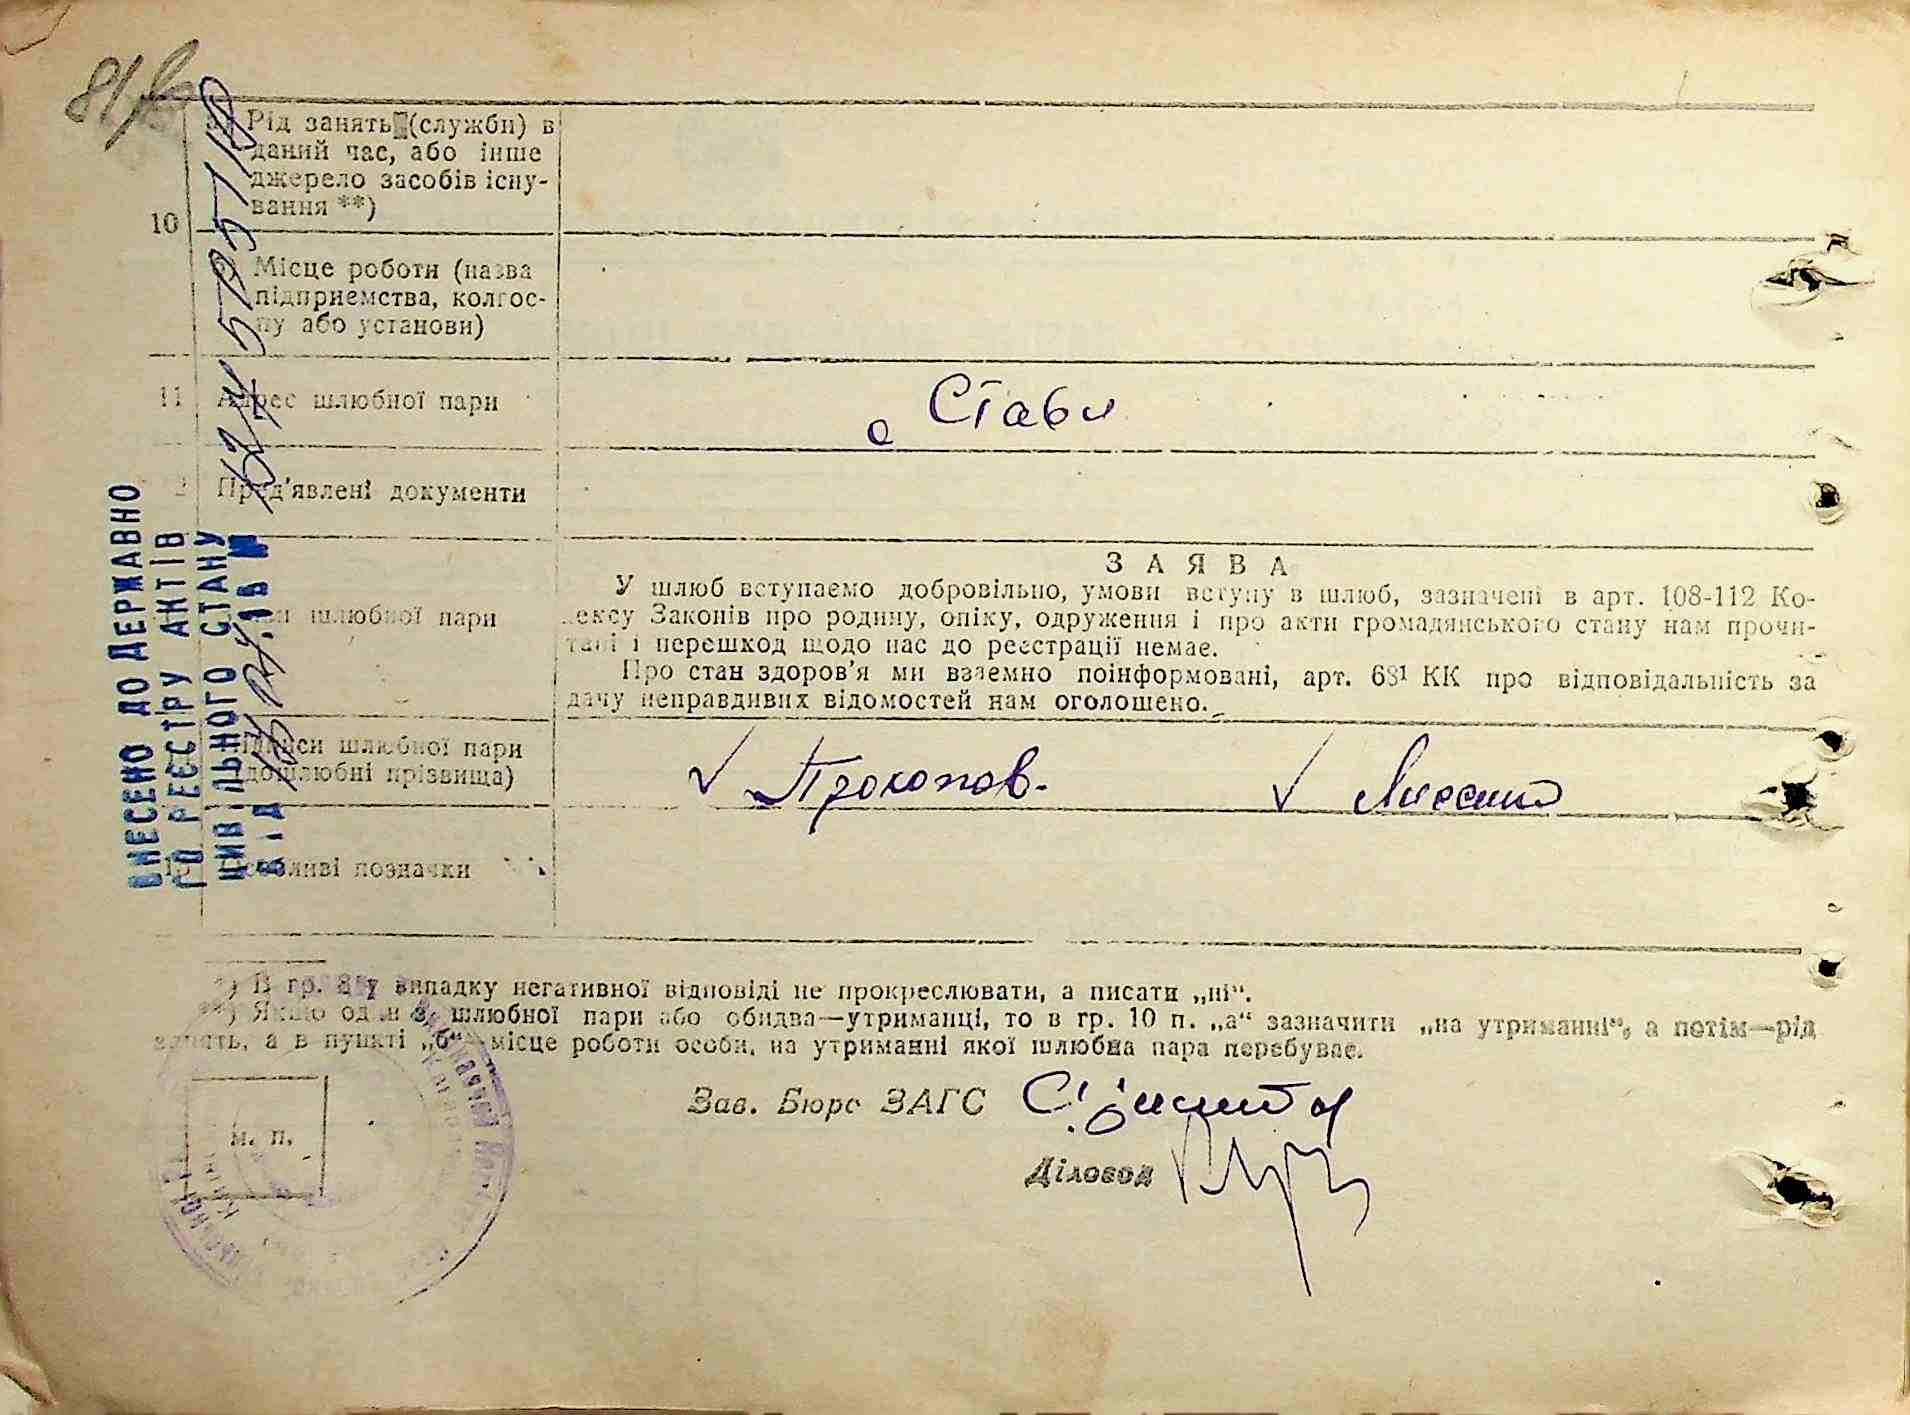 Рід занять (служби) в
даний час, або інше
джерело засобів існу-
вання **)
10
Місце роботи (назва
підприємства, колгос-
пу або установи)
11 Адрес шлюбної пари
с Стави
Пред'явлені документи
ЗАЯВА
У шлюб вступаємо добровільно, умови вступу в шлюб, зазначені в арт. 108-112 Ко-
дексу Законів про родину, опіку, одруження і про акти громадянського стану нам прочи-
тані і перешкод щодо нас до реєстрації немає.
шлюбної пари
Про стан здоров'я ми взаємно поінформовані, арт. 68¹ КК про відповідальність за
дачу неправдивих відомостей нам оголошено.
Підписи шлюбної пари
(дошлюбні прізвища)
Прокопов.
Особливі позначки
*) В гр. 8 у випадку негативної відповіді не прокреслювати, а писати „ні“.
**) Якщо один з шлюбної пари або обидва—утриманці, то в гр. 10 п. „а“ зазначити „на утриманні“, а потім—рід
занять, а в пункті „б“—місце роботи особи, на утриманні якої шлюбна пара перебуває.
Зав. Бюро ЗАГС
м. п.
Діловод
ВНЕСЕНО ДО ДЕРЖАВНО
ГО РЕЄСТРУ АКТІВ
ЦИВІЛЬНОГО СТАНУ